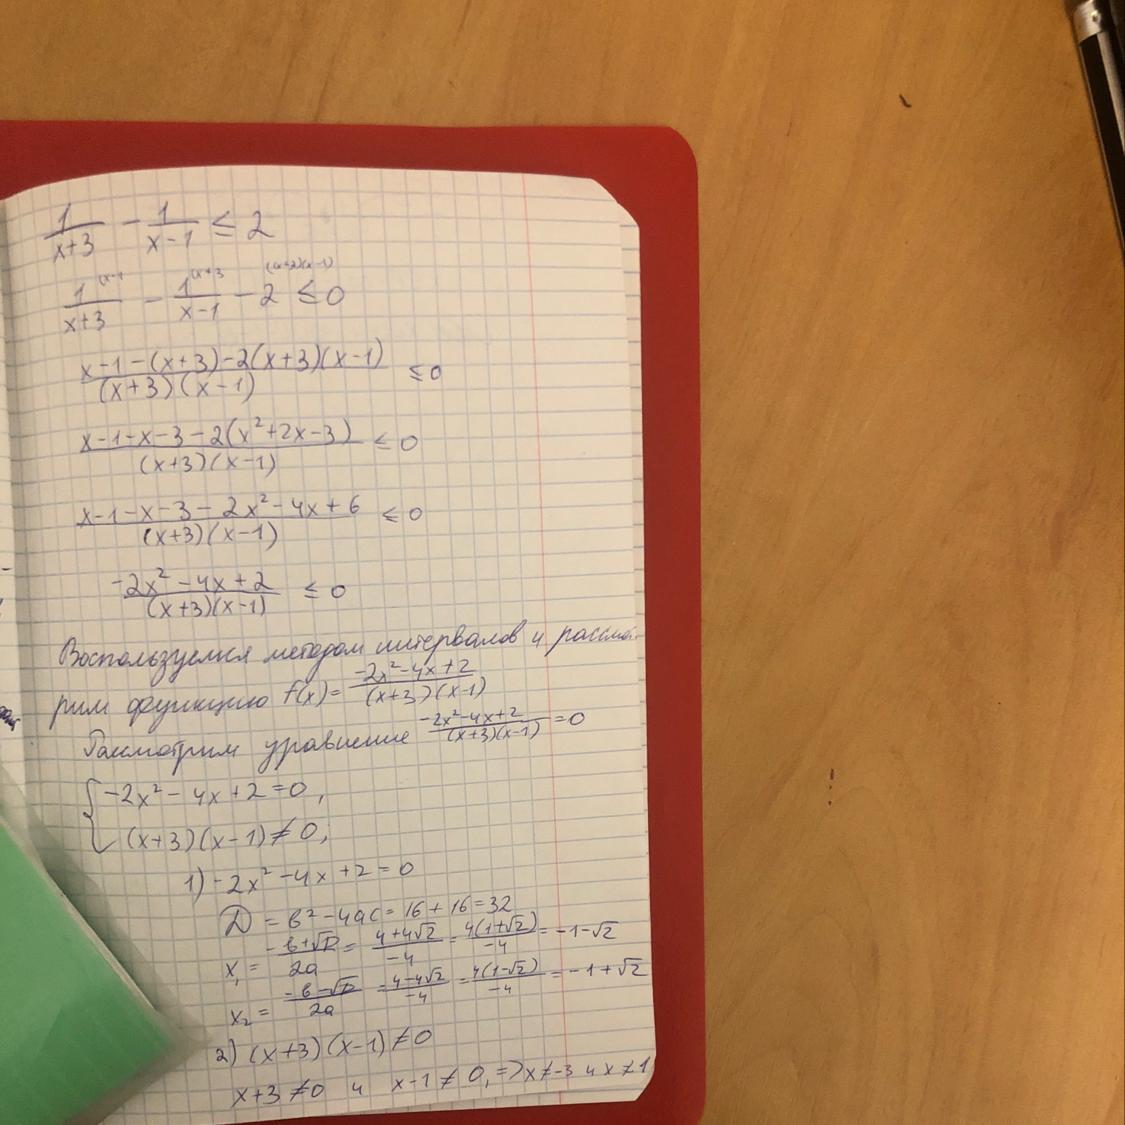 1/(x+3) - 1/(x-1) ≤ 2
1^(x-1/(x+3) - 1^(x+3/(x-1) - 2^(x+2)(x-1) ≤ 0
(x-1-(x+3)-2(x+3)(x-1))/((x+3)(x-1)) ≤0
(x-1-x-3-2(x²+2x-3))/((x+3)(x-1)) ≤ 0
(x-1-x-3-2x²-4x+6)/((x+3)(x-1)) ≤ 0
(-2x²-4x+2)/((x+3)(x-1)) ≤ 0
Воспользуемся методом интервалов и рассмот
рим функцию f(x)= (-2x²-4x+2)/((x+3)(x-1))
Рассмотрим уравнение (-2x²-4x+2)/((x+3)(x-1)) =0
{ -2x²-4x+2=0,
(x+3)(x-1)≠0;
1) -2x²-4x+2=0
D = b²-4ac=16+16=32
x₁ = (-b+√D)/2a = (4+4√2)/-4 = 4(1+√2)/-4 = -1-√2
x₂ = (-b-√D)/2a = (4-4√2)/-4 = 4(1-√2)/-4 = -1+√2
2) (x+3)(x-1)≠0
x+3≠0 и x-1≠0, => x≠-3 и x≠1